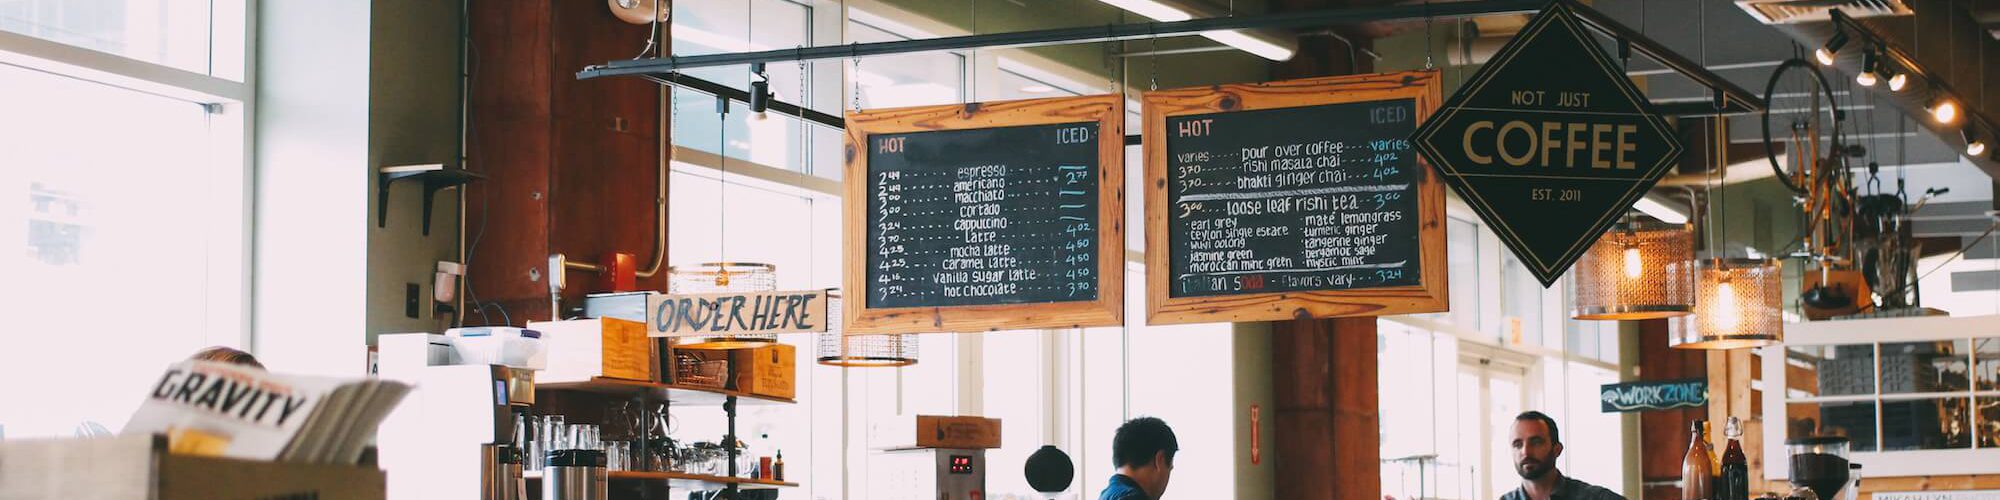 HOT ICED
2.49 espresso
2.49 americano 2.77
3.00 macchiato
3.00 cortado
3.24 cappuccino
3.70 latte 4.02
4.25 mocha latte 4.50
4.25 caramel latte 4.50
4.16 vanilla sugar latte 4.50
3.24 hot chocolate 3.70
HOT ICED
varies pour over coffee varies
3.70 rishi masala chai 4.02
3.70 bhakti ginger chai 4.02
3.00 loose leaf rishi tea 3.00
earl grey
ceylon single estate
wuyi oolong
jasmine green
moroccan mint green
maté lemongrass
turmeric ginger
tangerine ginger
bergamot sage
mystic mint
italian soda - flavors vary 3.24
NOT JUST
COFFEE
EST. 2011
ORDER HERE
GRAVITY
WORKZONE